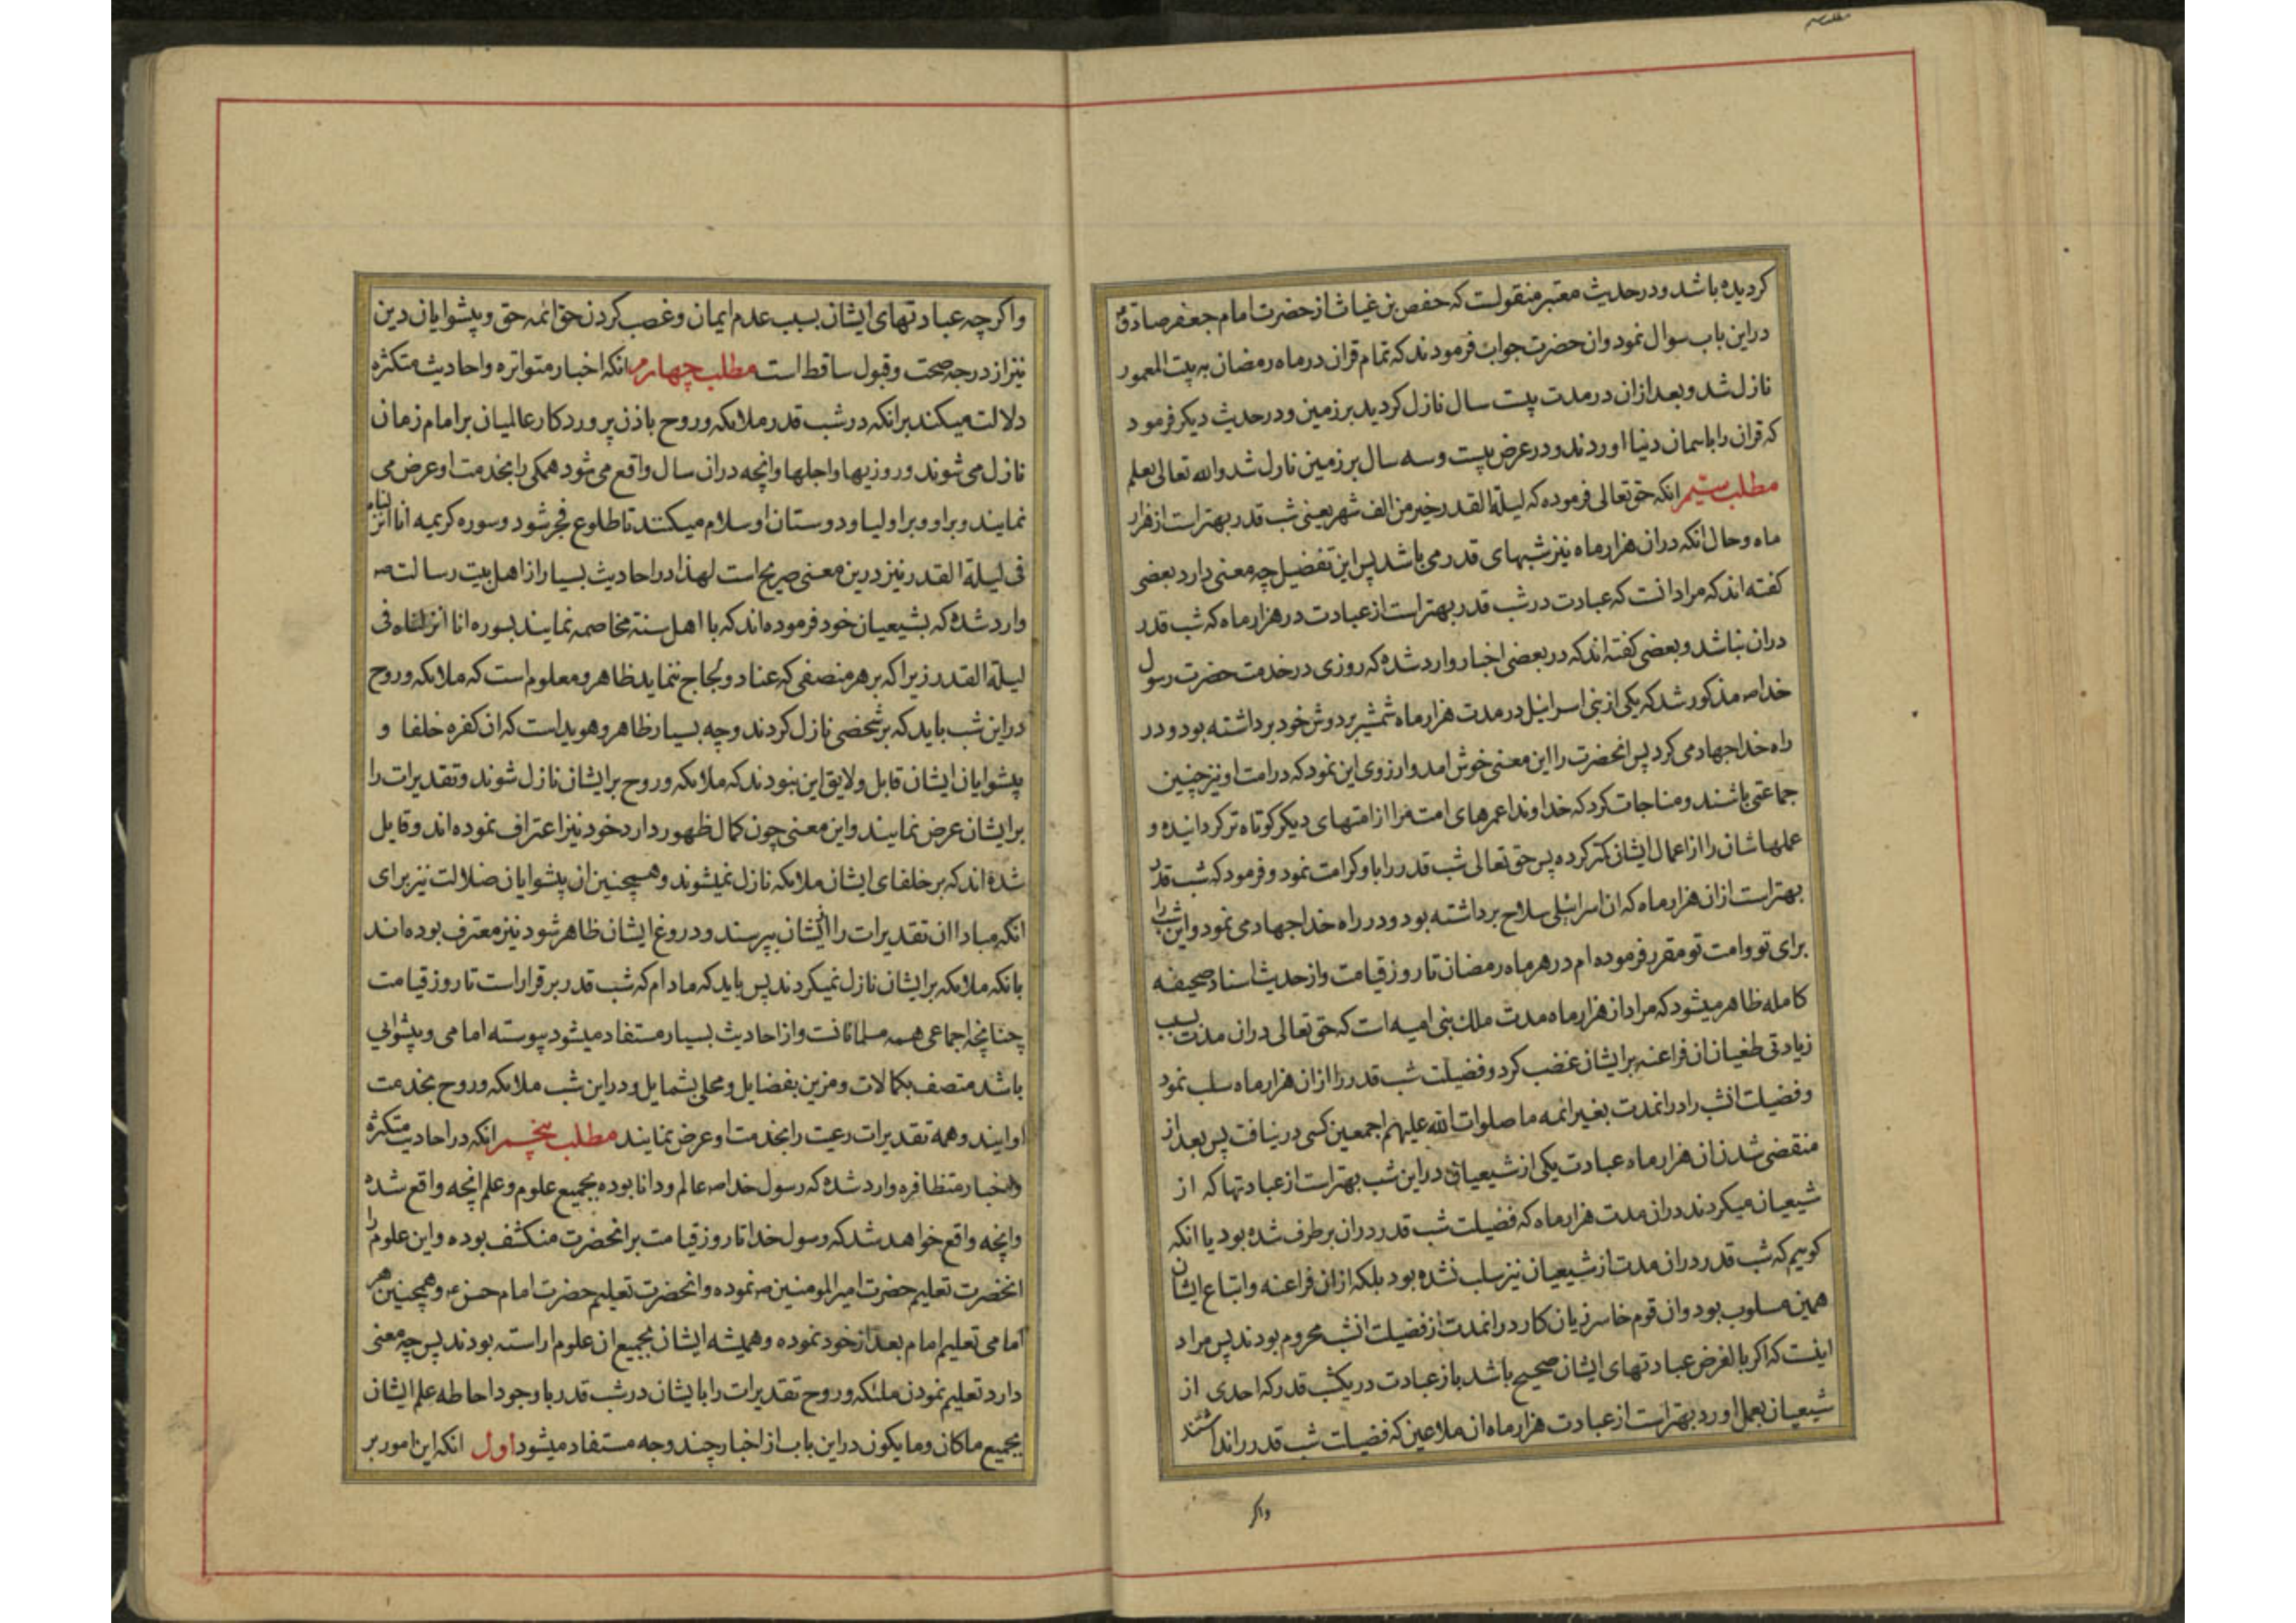 مطلب سیم
کردیده باشد و در حدیث معتبر منقولست که حفص بن غیاث از حضرت امام جعفر صادق
در این باب سوال نمود و ان حضرت جواب فرمودند که تمام قران در ماه رمضان به بیت المعمور
نازل شد و بعد از ان در مدت بیست سال نازل کردید بر زمین و در حدیث دیکر فرمود
که قران را باسمان دنیا اوردند و در عرض بیست و سه سال بر زمین نازل شد والله تعالی یعلم
مطلب سیم انکه حق تعالی فرموده که لیلة القدر خیر من الف شهر یعنی شب قدر بهتر است از هزار
ماه و حال انکه در ان هزار ماه نیز شبهای قدر می باشد پس این تفضیل چه معنی دارد بعضی
کفته اند که مراد انست که عبادت در شب قدر بهتر است از عبادت در هزار ماه که شب قدر
در ان نباشد و بعضی کفته اند که در بعضی اخبار وارد شده که روزی در خدمت حضرت رسول
خدا صه مذکور شد که یکی از بنی اسرائیل در مدت هزار ماه شمشیر بر دوش خود برداشته بود و در
راه خدا جهاد می کرد پس انحضرت را این معنی خوش امد و ارزوی این نمود که در امت او نیز چنین
جماعتی باشند و مناجات کرد که خداوندا عمرهای امت مرا از امتهای دیکر کوتاه تر کردانیده و
عملهاشان را از اعمال ایشان کمتر کرده پس حق تعالی شب قدر را باو کرامت نمود و فرمود که شب قدر
بهتر است از ان هزار ماه که ان اسرائلی سلاح برداشته بود و در راه خدا جهاد می نمود و این شب را
برای تو و امت تو مقرر فرموده ام در هر ماه رمضان تا روز قیامت و از حدیث اسناد صحیفه
کامله ظاهر میشود که مراد از هزار ماه مدت ملک بنی امیه است که حق تعالی در ان مدت بسبب
زیادتی طغیان ان فراعنه بر ایشان غضب کرد و فضیلت شب قدر را از ان هزار ماه سلب نمود
و فضیلت انشب را در انمدت بغیر ائمه ما صلوات الله علیهم اجمعین کسی در نیافت پس بعد از
منقضی شدن ان هزار ماه عبادت یکی از شیعیان در این شب بهتر است از عبادتها که از
شیعیان میکردند در ان مدت هزار ماه که فضیلت شب قدر در ان بر طرف شده بود یا انکه
کوییم که شب قدر در ان مدت از شیعیان نیز سلب نشده بود بلکه از ان فراعنه و اتباع ایشان
همین مسلوب بود و ان قوم خاسر زیان کار در انمدت از فضیلت انشب محروم بودند پس مراد
اینست که اکر بالفرض عبادتهای ایشان صحیح باشد باز عبادت در یکشب قدر که احدی از
شیعیان بعمل اورد بهتر است از عبادت هزار ماه ان ملاعین که فضیلت شب قدر را نداشتند
واکر
واکر چه عبادتهای ایشان بسبب عدم ایمان و غصب کردن حق ائمه حق و پیشوایان دین
نیز از درجه صحت و قبول ساقط است مطلب چهارم انکه اخبار متواتره و احادیث متکثره
دلالت میکند بر انکه در شب قدر ملائکه و روح باذن پروردکار عالمیان بر امام زمان
نازل می شوند و روزیها و اجلها و انچه در ان سال واقع می شود همکی را بخدمت او عرض می
نمایند و بر او و بر اولیا و دوستان او سلام میکنند تا طلوع فجر شود و سوره کریمه انا انزلناه
فی لیلة القدر نیز درین معنی صریح است لهذا در احادیث بسیار از اهل بیت رسالت صه
وارد شده که بشیعیان خود فرموده اند که با اهل سنة مخاصمه نمایند بسوره انا انزلناه فی
لیلة القدر زیرا که بر هر منصفی که عناد و لجاج ننماید ظاهر و معلوم است که ملائکه و روح
در این شب باید که بر شخصی نازل کردند و چه بسیار ظاهر و هویداست که ان کفره خلفا و
پیشوایان ایشان قابل و لایق این نبودند که ملائکه و روح بر ایشان نازل شوند و تقدیرات را
بر ایشان عرض نمایند و این معنی چون کمال ظهور دارد خود نیز اعتراف نموده اند و قایل
شده اند که بر خلفای ایشان ملائکه نازل نمیشوند و همچنین ان پیشوایان ضلالت نیز برای
انکه مبادا ان تقدیرات را از ایشان بپرسند و دروغ ایشان ظاهر شود نیز معترف بوده اند
بانکه ملائکه بر ایشان نازل نمیکردند پس باید که مادام که شب قدر بر قرار است تا روز قیامت
چنانچه اجماعی همه مسلمانانست و از احادیث بسیار مستفاد میشود پیوسته امامی و پیشوایی
باشد متصف بکمالات و مزین بفضایل و محلی بشمایل و در این شب ملائکه و روح بخدمت
او ایند و همه تقدیرات رعیت را بخدمت او عرض نمایند مطلب پنجم انکه در احادیث متکثره
و اخبار متظافره وارد شده که رسول خدا صه عالم و دانا بوده بجمیع علوم و علم انچه واقع شده
وانچه واقع خواهد شد که رسول خدا تا روز قیامت بر انحضرت منکشف بوده و این علوم را
انحضرت تعلیم حضرت امیر المومنین صه نموده و انحضرت تعلیم حضرت امام حسن عه و همچنین هر
امامی تعلیم امام بعد از خود نموده و همیشه ایشان بجمیع ان علوم اراسته بودند پس چه معنی
دارد تعلیم نمودن ملئکه و روح تقدیرات را بایشان در شب قدر با وجود احاطه علم ایشان
بجمیع ماکان و ما یکون در این باب از اخبار چند وجه مستفاد میشود اول انکه این امور بر